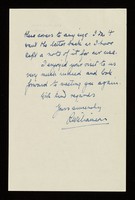 these cover to any age. I do not
want the letter back as I have
kept a note of it for our use.
I enjoyed your visit to us
very much indeed and look
forward to meeting you again.
With kind regards
Yours sincerely